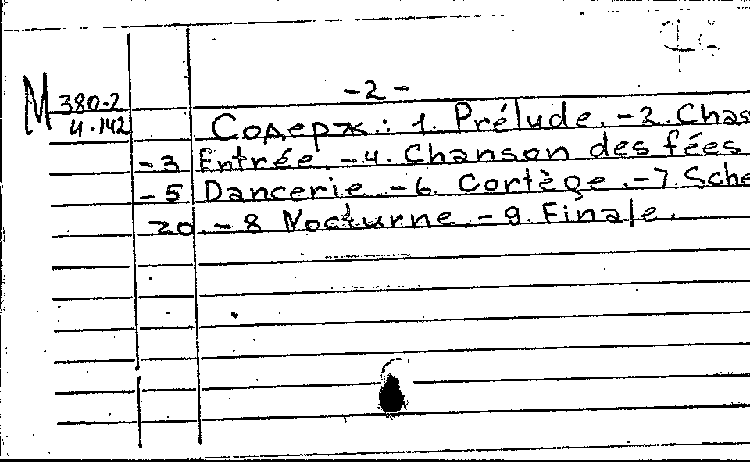 -2-
M 380-2
4.142
Содерж.: 1. Prélude. -2. Chas
-3 Entrée. -4. Chanson des fées
-5 Dancerie. -6. Cortège. -7. Sche
zo. -8 Nocturne. -9. Finale.